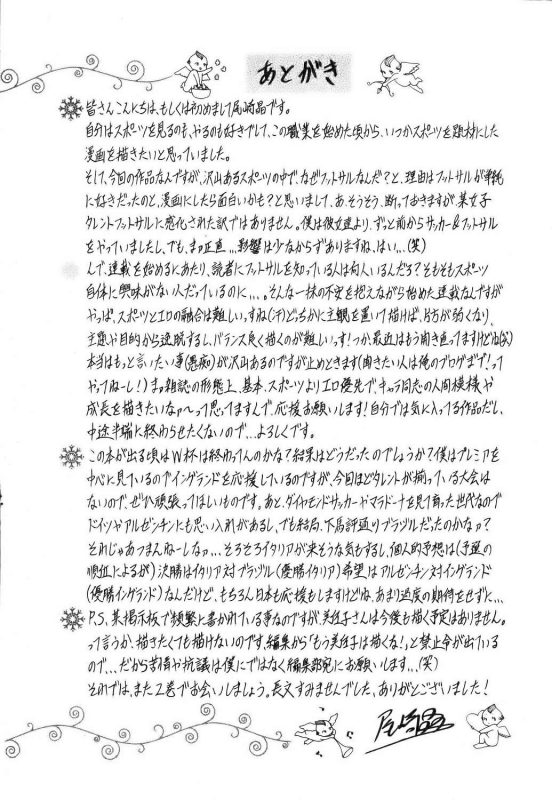 あとがき
皆さんこんにちは、もしくは初めまして尾崎晶です。
自分はスポーツを見るのも、やるのも好きでして、この職業を始めた頃から、いつかスポーツを題材にした
漫画を描きたいと思っていました。
そして、今回の作品なんですが、沢山あるスポーツの中で、なぜフットサルなんだ?と、理由はフットサルが単純
に好きだったのと、漫画にしたら面白いかも?と思いまして、あ、そうそう、断っておきますが、某女子
タレントフットサルに感化された訳ではありません。僕は彼女達より、ずっと前からサッカー&フットサル
をやっていましたし、でも、まぁ正直…影響は少なからずありますね、はい…(笑)
んで、連載を始めるにあたり、読者にフットサルを知っている人は何人いるんだろ?そもそもスポーツ
自体に興味がない人だっているのに…。そんな一抹の不安を抱えながら始めた連載なんですが
やっぱ、スポーツとエロの融合は難しいっすね(汗)どっちかに主観を置いて描けば、片方が弱くなり、
主題や目的から逸脱するし、バランス良く描くのが難しいっす!つか、最近はもう開き直ってますけどね(笑)
本当はもっと言いたい事(愚痴)が沢山あるのですが止めときます(聞きたい人は俺のブログまで!って
やってねーし!)まぁ雑誌の形態上、基本、スポーツよりエロ優先で、キャラ同志の人間模様や
成長を描きたいなァ〜って思ってますんで、応援お願いします!自分では気に入ってる作品だし、
中途半端に終わらせたくないので…よろしくです。
この本が出る頃はW杯は終わってんのかな?結果はどうだったのでしょうか?僕はプレミアを
中心に見ているのでイングランドを応援しているのですが、今回ほどタレントが揃っている大会は
ないので、ぜひ頑張ってほしいものです。あと、ダイヤモンドサッカーやマラドーナを見て育った世代なので
ドイツやアルゼンチンにも思い入れがあるし、でも結局、下馬評通りブラジルだったのかなァ?
それじゃあつまんねーしなァ…そろそろイタリアが来そうな気もするし、個人的予想は(予選の
順位によるが)決勝はイタリア対ブラジル(優勝イタリア)希望はアルゼンチン対イングランド
(優勝イングランド)なんだけど、もちろん日本も応援もしますけどね、あまり過度の期待をせずに…
P.S. 某掲示板で頻繁に書かれている事なのですが、美佐子さんは今後も描く予定はありません。
って言うか、描きたくても描けないのです、編集から「もう美佐子は描くな!」と禁止令が出ている
ので…だから苦情や抗議は僕にではなく編集部宛にお願いします…(笑)
それでは、また2巻でお会いしましょう。長文すみませんでした、ありがとございました!
尾崎晶